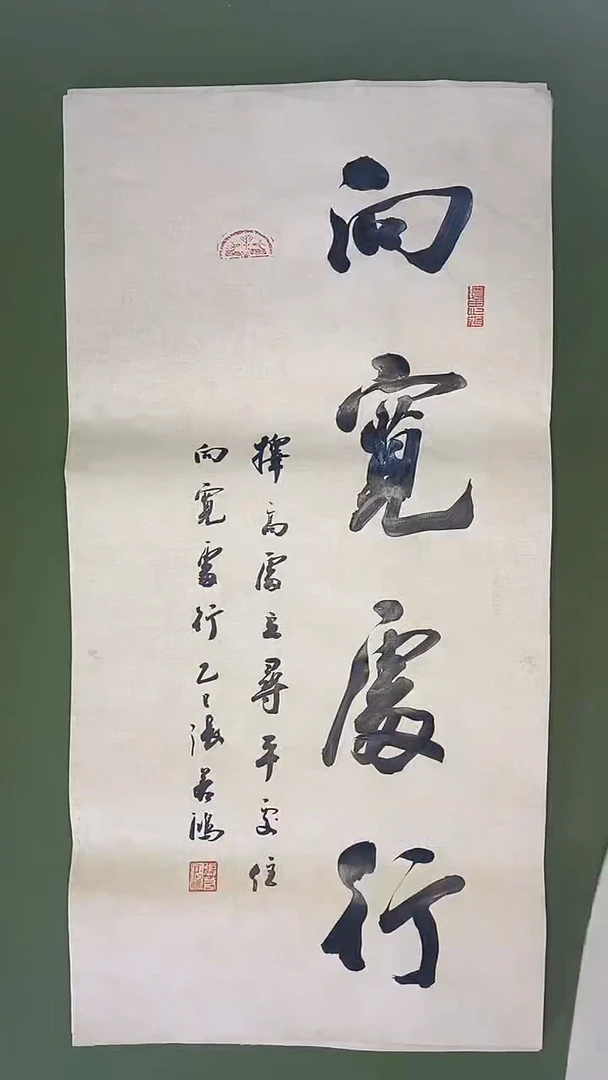 向寬處行
擇高處立尋平處住
向寬處行乙巳張若鴻